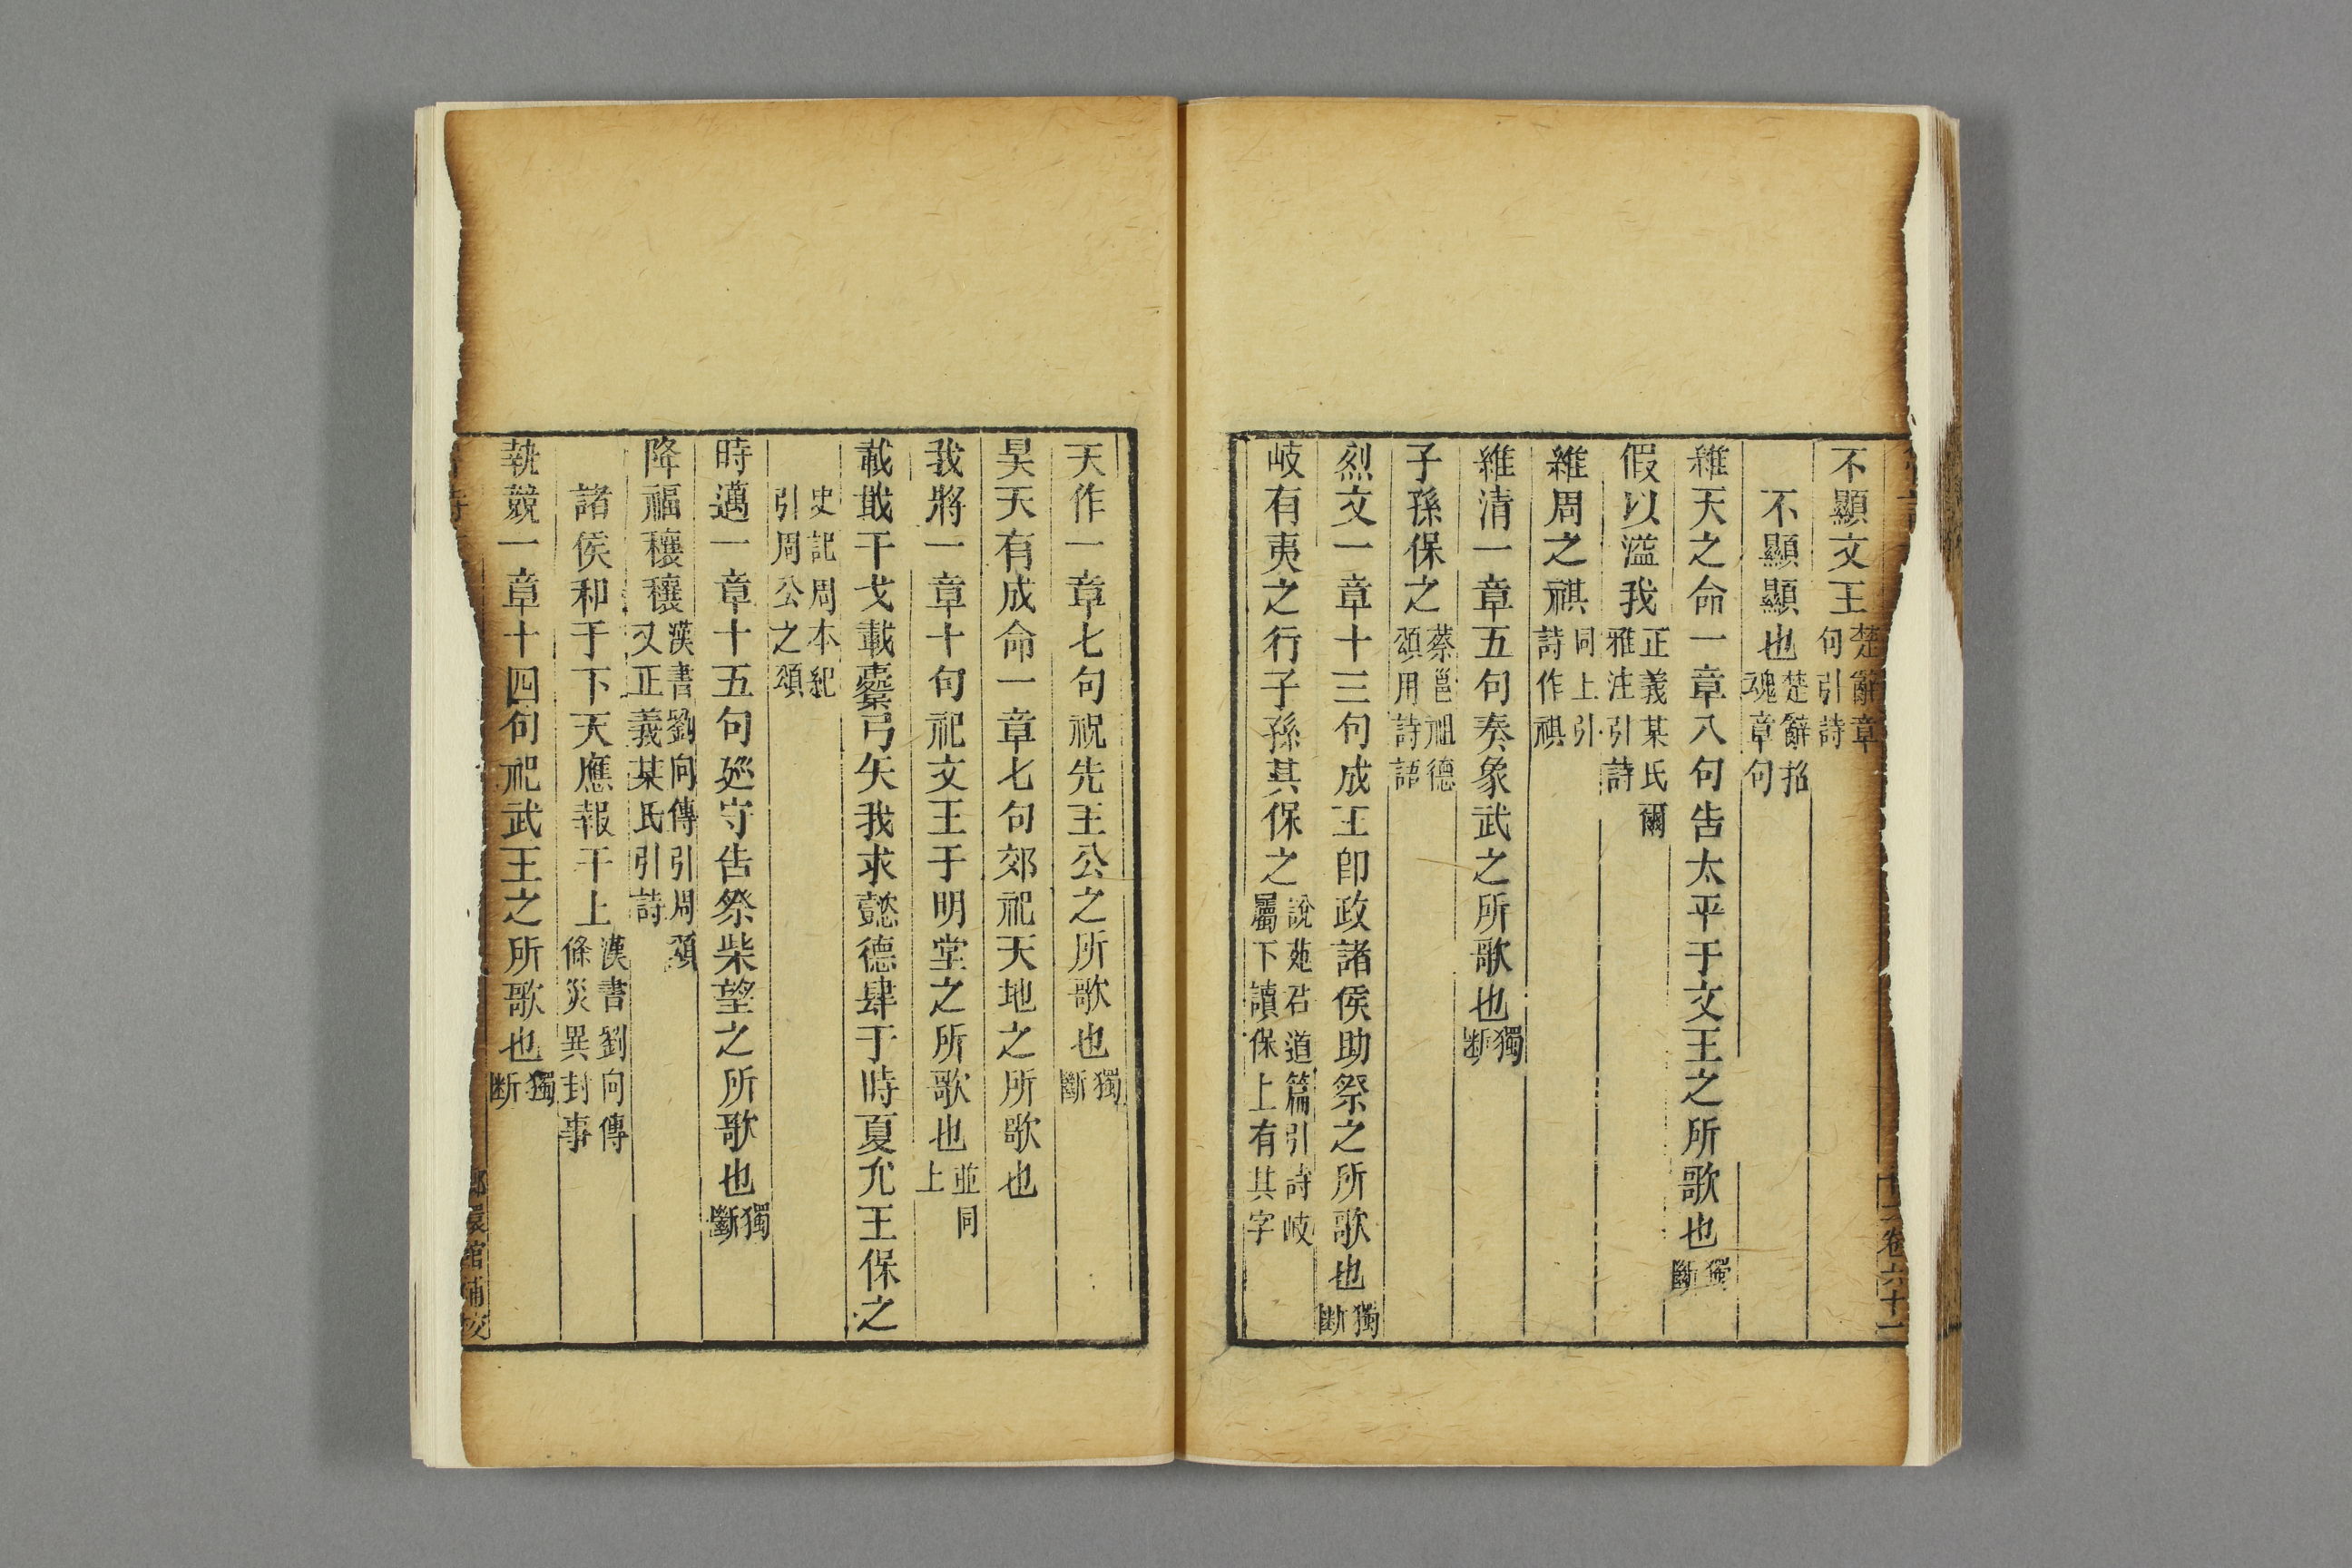 不顯文王楚辭章句引詩
不顯顯也楚辭招魂章句
維天之命一章八句告太平于文王之所歌也獨斷
假以溢我正義某氏爾雅注引詩
維周之祺同上引詩作祺
維清一章五句奏象武之所歌也獨斷
子孫保之蔡邕祖德頌用詩語
烈文一章十三句成王卽政諸侯助祭之所歌也獨斷
岐有夷之行子孫其保之說苑君道篇引詩岐屬下讀保上有其字
卷六十一
天作一章七句祝先王公之所歌也獨斷
昊天有成命一章七句郊祀天地之所歌也
我將一章十句祀文王于明堂之所歌也並同上
載戢干戈載櫜弓矢我求懿德肆于時夏允王保之
史記周本紀引周公之頌
時邁一章十五句廵守告祭柴望之所歌也獨斷
降福穰穰漢書劉向傳引周頌又正義某氏引詩
諸侯和于下天應報于上漢書劉向傳條災異封事
執競一章十四句祀武王之所歌也獨斷
嬛館補校